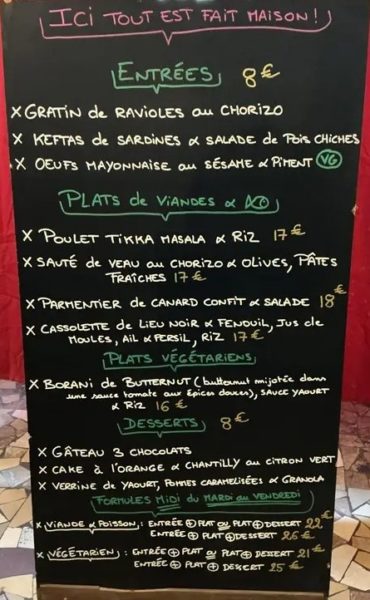 Ici tout est fait maison !
Entrées 8€
x Gratin de ravioles au chorizo
x Keftas de sardines & salade de pois chiches
x Oeufs mayonnaise au sésame & piment VG
Plats de viandes &
x Poulet tikka masala & riz 17€
x Sauté de veau au chorizo & olives, pâtes
fraîches 17€
x Parmentier de canard confit & salade 18€
x Cassolette de lieu noir & fenouil, jus de
moules, ail & persil, riz 17€
Plats végétariens
x Borani de butternut (butternut mijotée dans
une sauce tomate aux épices douces), sauce yaourt
& riz 16€
Desserts 8€
x Gâteau 3 chocolats
x Cake à l'orange & chantilly au citron vert
x Verrine de yaourt, pommes caramélisées & granola
Formules midi du mardi au vendredi
x Viande & poisson : entrée + plat ou plat + dessert 22€
entrée + plat + dessert 26€
x Végétarien : entrée + plat ou plat + dessert 21€
entrée + plat + dessert 25€